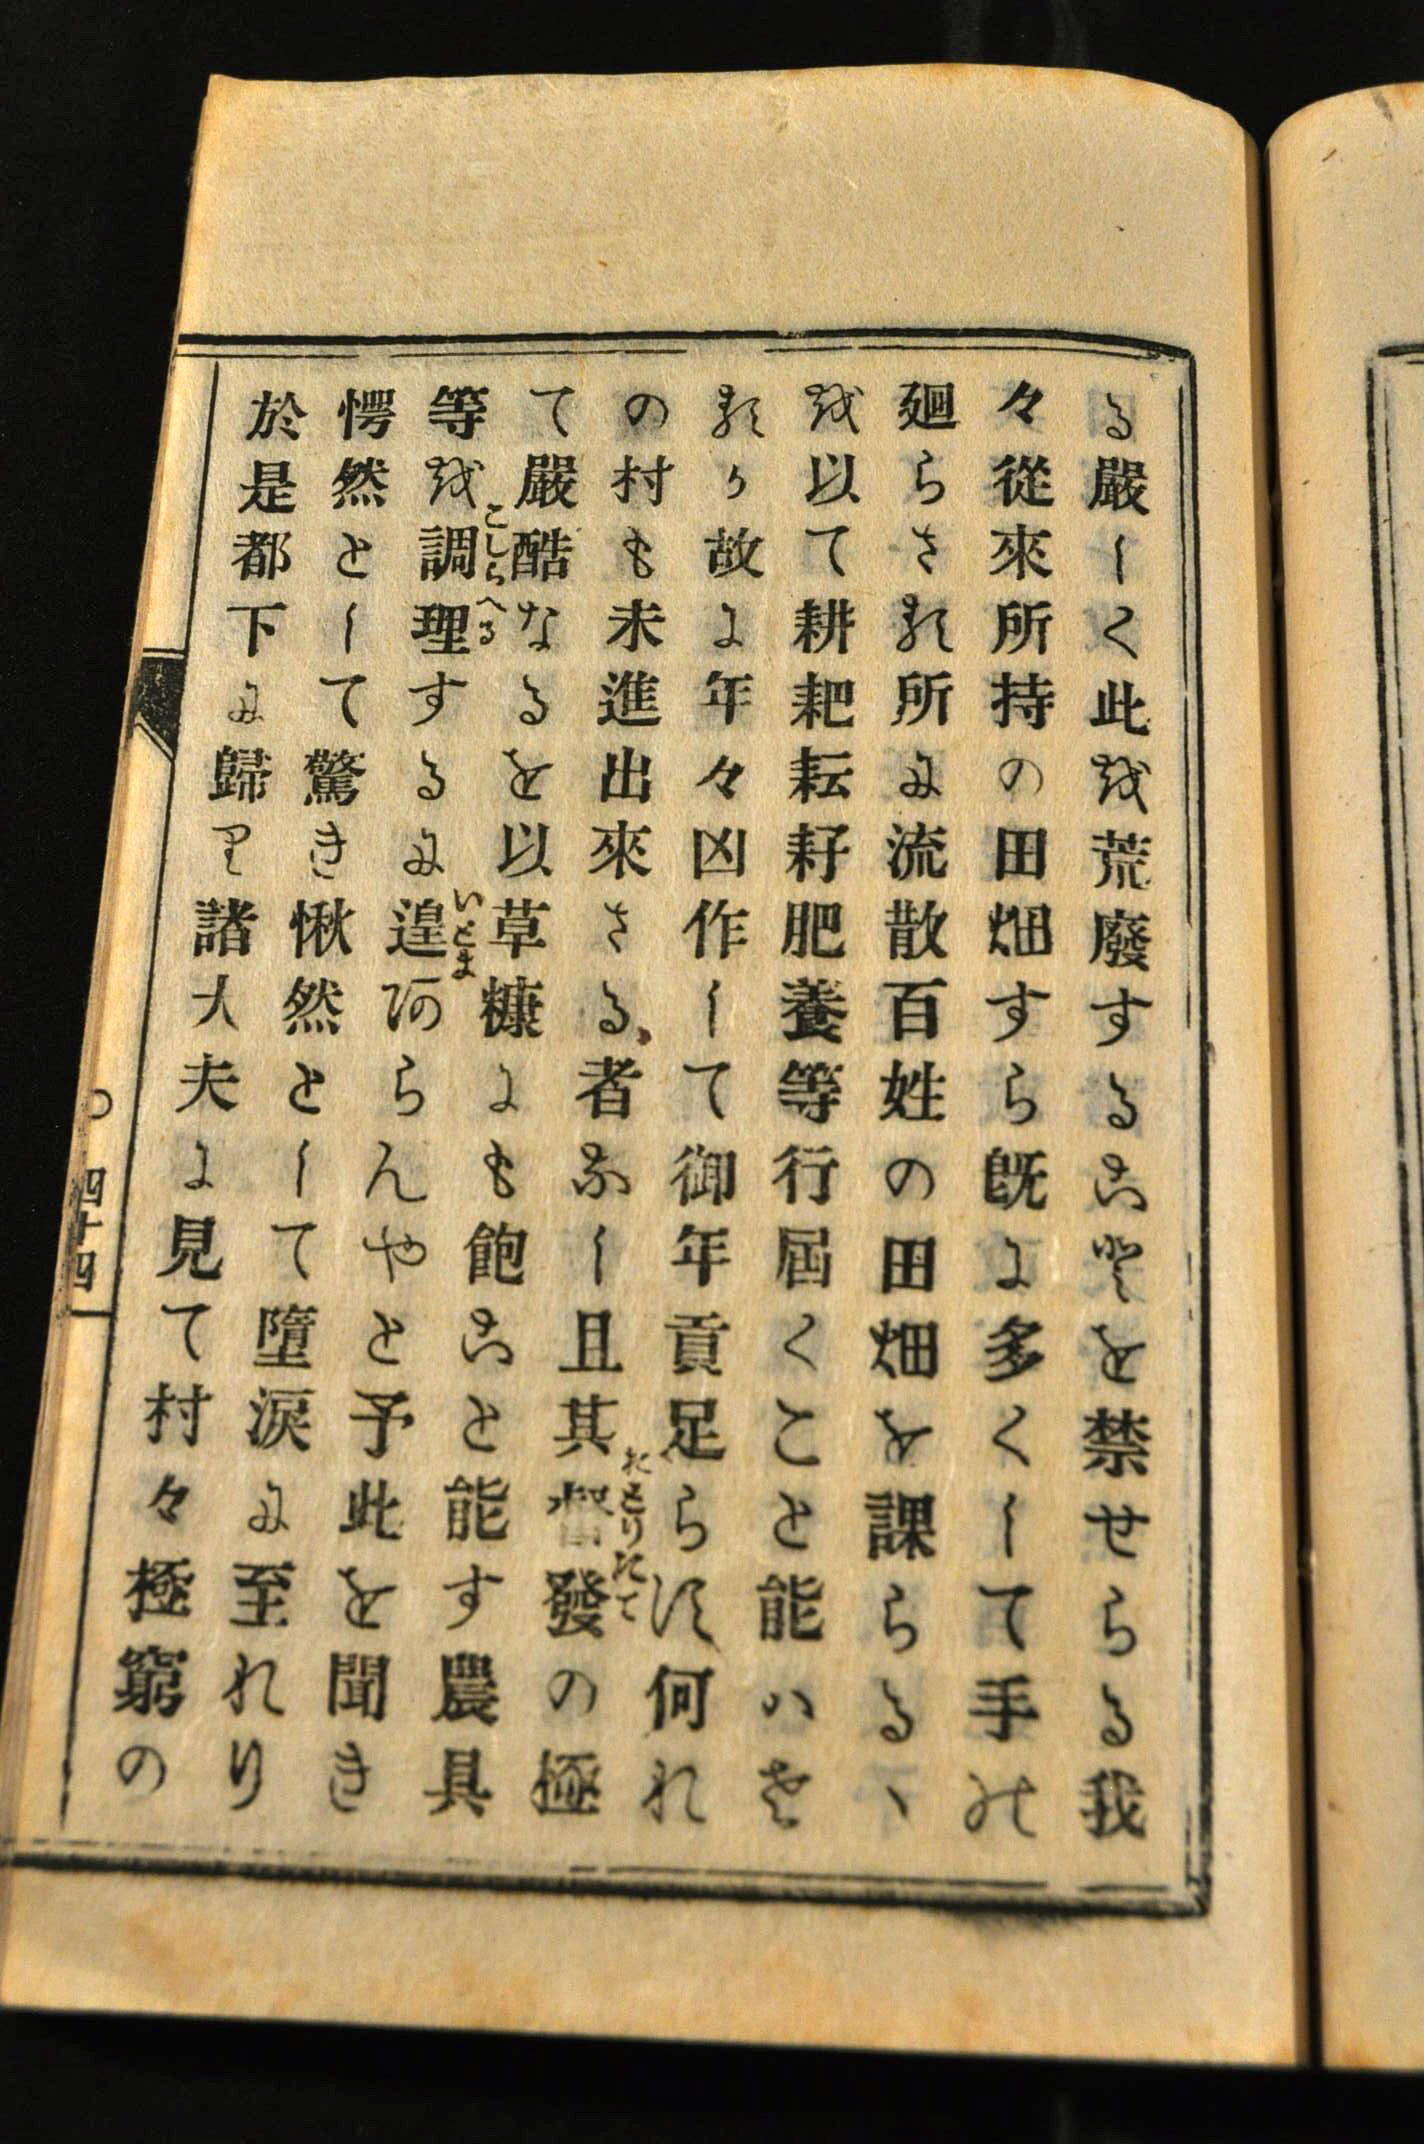 る嚴しく此を荒廢することを禁せらる我
々從來所持の田畑すら既に多くして手の
廻らされ所に流散百姓の田畑を課らるヽ
を以て耕耙耘耔肥養等行届くこと能はさ
れか故に年々凶作して御年貢足らす何れ
の村も未進出來さる者なし且其督發の極
て嚴酷なるを以草糠にも飽こと能す農具
等を調理するに遑あらんやと予此を聞き
愕然として驚き愀然として墮淚に至れり
於是都下に歸り諸大夫に見て村々極窮の
こしらへる
いとま
とりたて
四十四